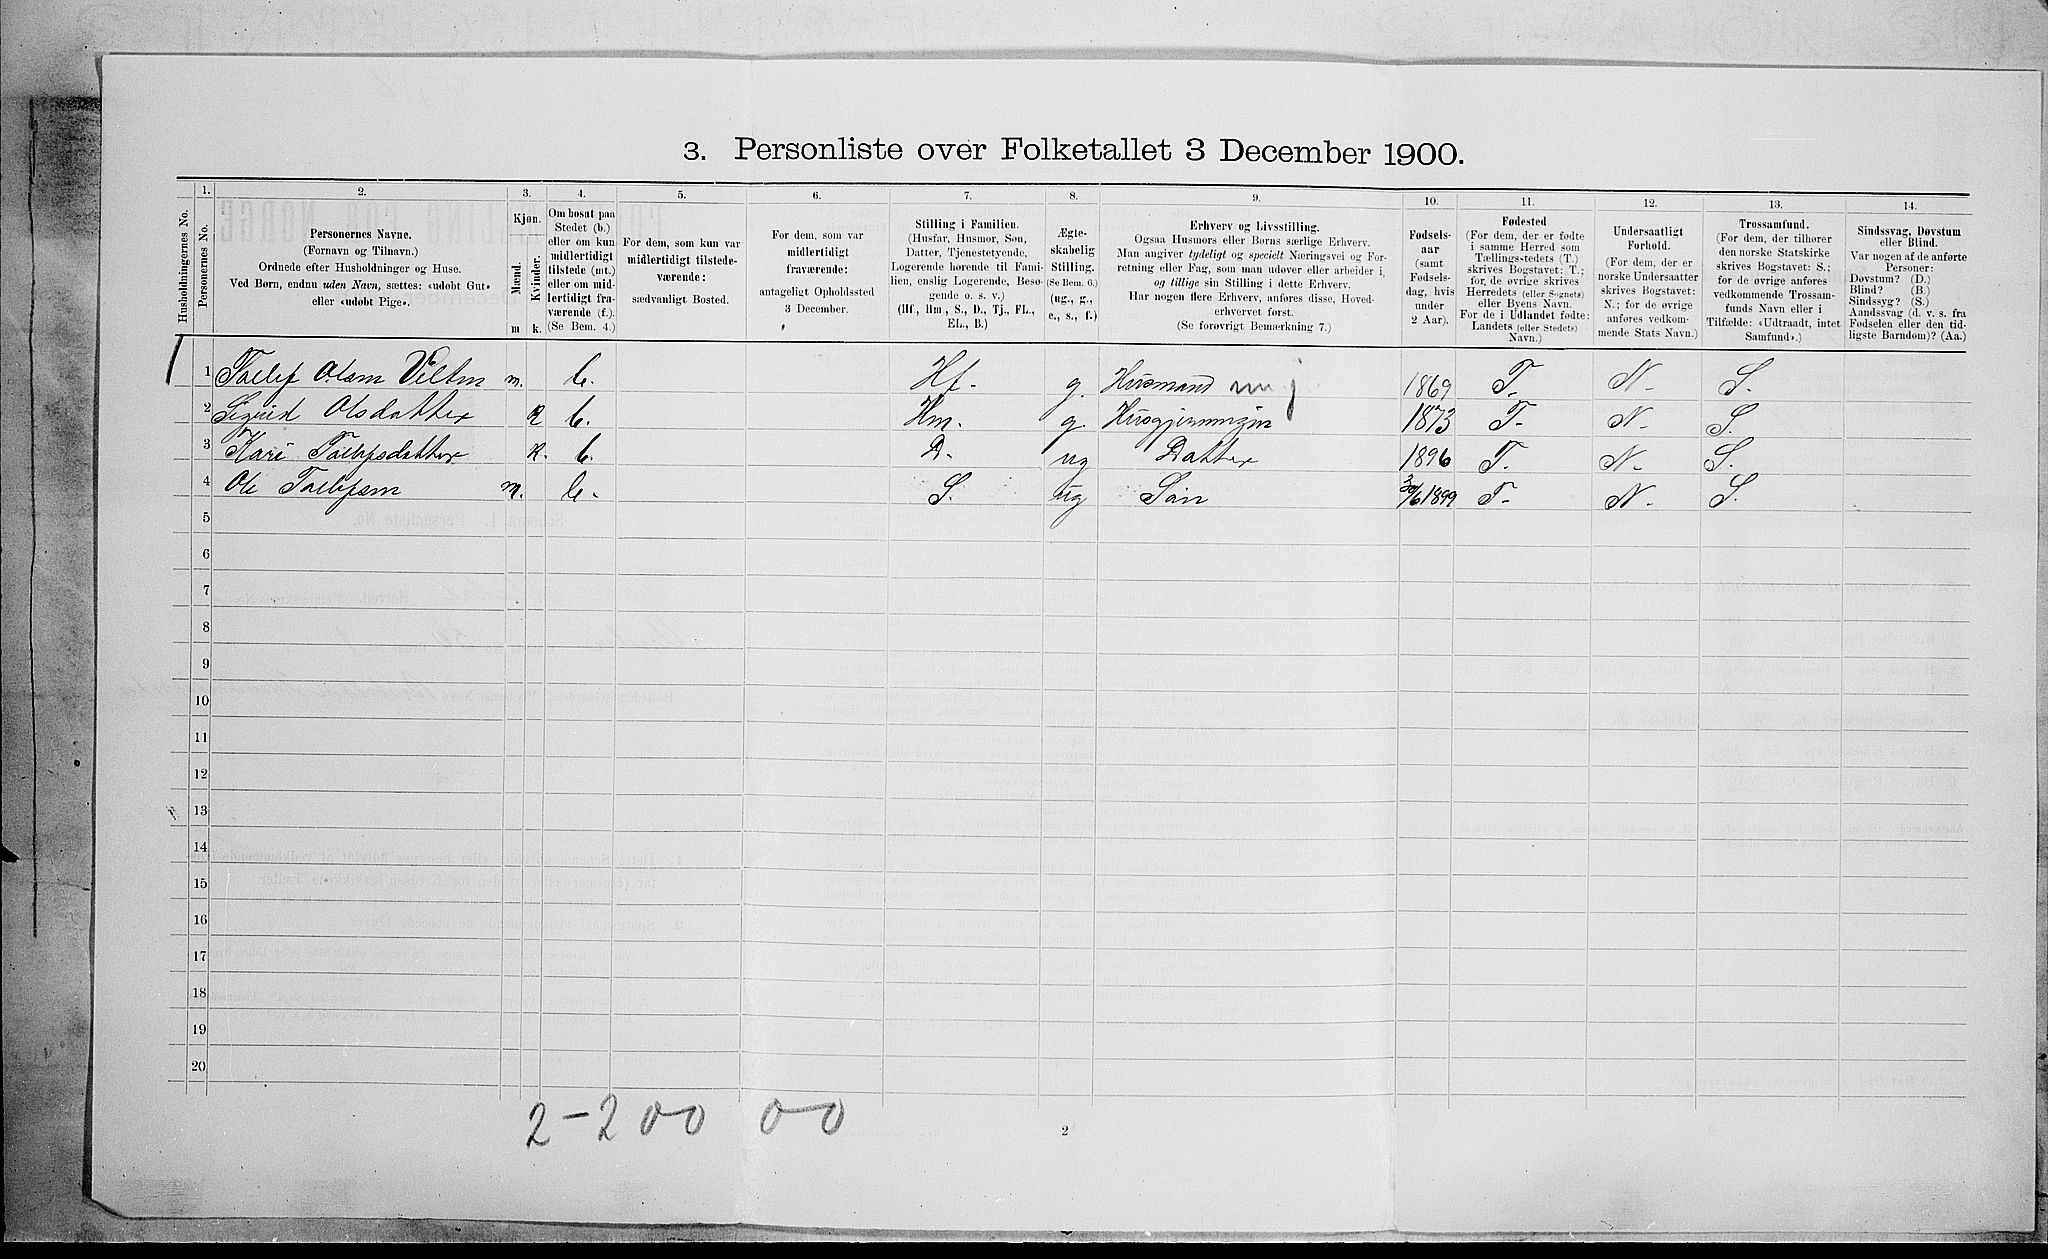 3. Personliste over Folketallet 3 December 1900.
1. 2. 3. 4. 5. 6. 7. 8. 9. 10. 11. 12. 13. 14.
Husholdningernes No.
Personernes No.
Personernes Navne.
(Fornavn og Tilnavn.)
Ordnede efter Husholdninger og Huse.
Ved Børn, endnu uden Navn, sættes: «udøbt Gut»
eller «udøbt Pige».
Kjøn.
Mænd.
Kvinder.
m k.
Om bosat paa
Stedet (b.)
eller om kun
midlertidigt
tilstede (mt.)
eller om mid-
lertidigt fra-
værende (f.).
(Se Bem. 4.)
For dem, som kun var
midlertidigt tilstede-
værende:
sædvanligt Bosted.
For dem, som var
midlertidigt
fraværende:
antageligt Opholdssted
3 December.
Stilling i Familien.
(Husfar, Husmor, Søn,
Datter, Tjenestetyende,
Logerende hørende til Fami-
lien, enslig Logerende, Besø-
gende o. s. v.)
(Hf., Hm., S., D., Tj., FL.,
EL., B.)
Ægte-
skabelig
Stilling.
(Se Bem. 6.)
(ug., g.,
e., s., f.)
Erhverv og Livsstilling.
Ogsaa Husmors eller Børns særlige Erhverv.
Man angiver tydeligt og specielt Næringsvei og For-
retning eller Fag, som man udøver eller arbeider i,
og tillige sin Stilling i dette Erhverv.
Har nogen flere Erhverv, anføres disse, Hoved-
erhvervet først.
(Se forøvrigt Bemærkning 7.)
Fødsels-
aar
(samt
Fødsels-
dag, hvis
under
2 Aar).
Fødested
(For dem, der er fødte
i samme Herred som
Tællings-stedets (T.)
skrives Bogstavet: T.;
for, de øvrige skrives
Herredets (eller Sognets)
eller Byens Navn.
For de i Udlandet fødte:
Landets (eller Stedets)
Navn.)
Undersaatligt
Forhold.
(For dem, der er
norske Undersaatter
skrives Bogstavet:
N.; for de øvrige
anføres vedkom-
mende Stats Navn.)
Trossamfund.
(For dem, der tilhører
den norske Statskirke
skrives Bogstavet: S.;
for de øvrige anføres
vedkommende Trossam-
funds Navn eller i
Tilfælde: «Udtraadt, intet
Samfund».)
Sindssvag, Døvstum
eller Blind.
Var nogen af de anførte
Personer:
Døvstum? (D.)
Blind? (B.)
Sindssyg? (S.)
Aandssvag (d. v. s. fra
Fødselen eller den tid-
ligste Barndom)? (Aa.)
1 Olsen m. b. Hf. g. Husmand 1869 T. N. S.
2 Sigrid Olsdatter k b. Hm. g. Husgjerningen 1873 T. N. S.
3 Kari k. b. D. ug Datter 1896 T. N. S.
4 Ole m. b. S. ug Søn 30/6 1899 T. N. S.
5
6
7
8
9
10
11
12
13
14
15
16
17
18
19
20
2-200 00
2